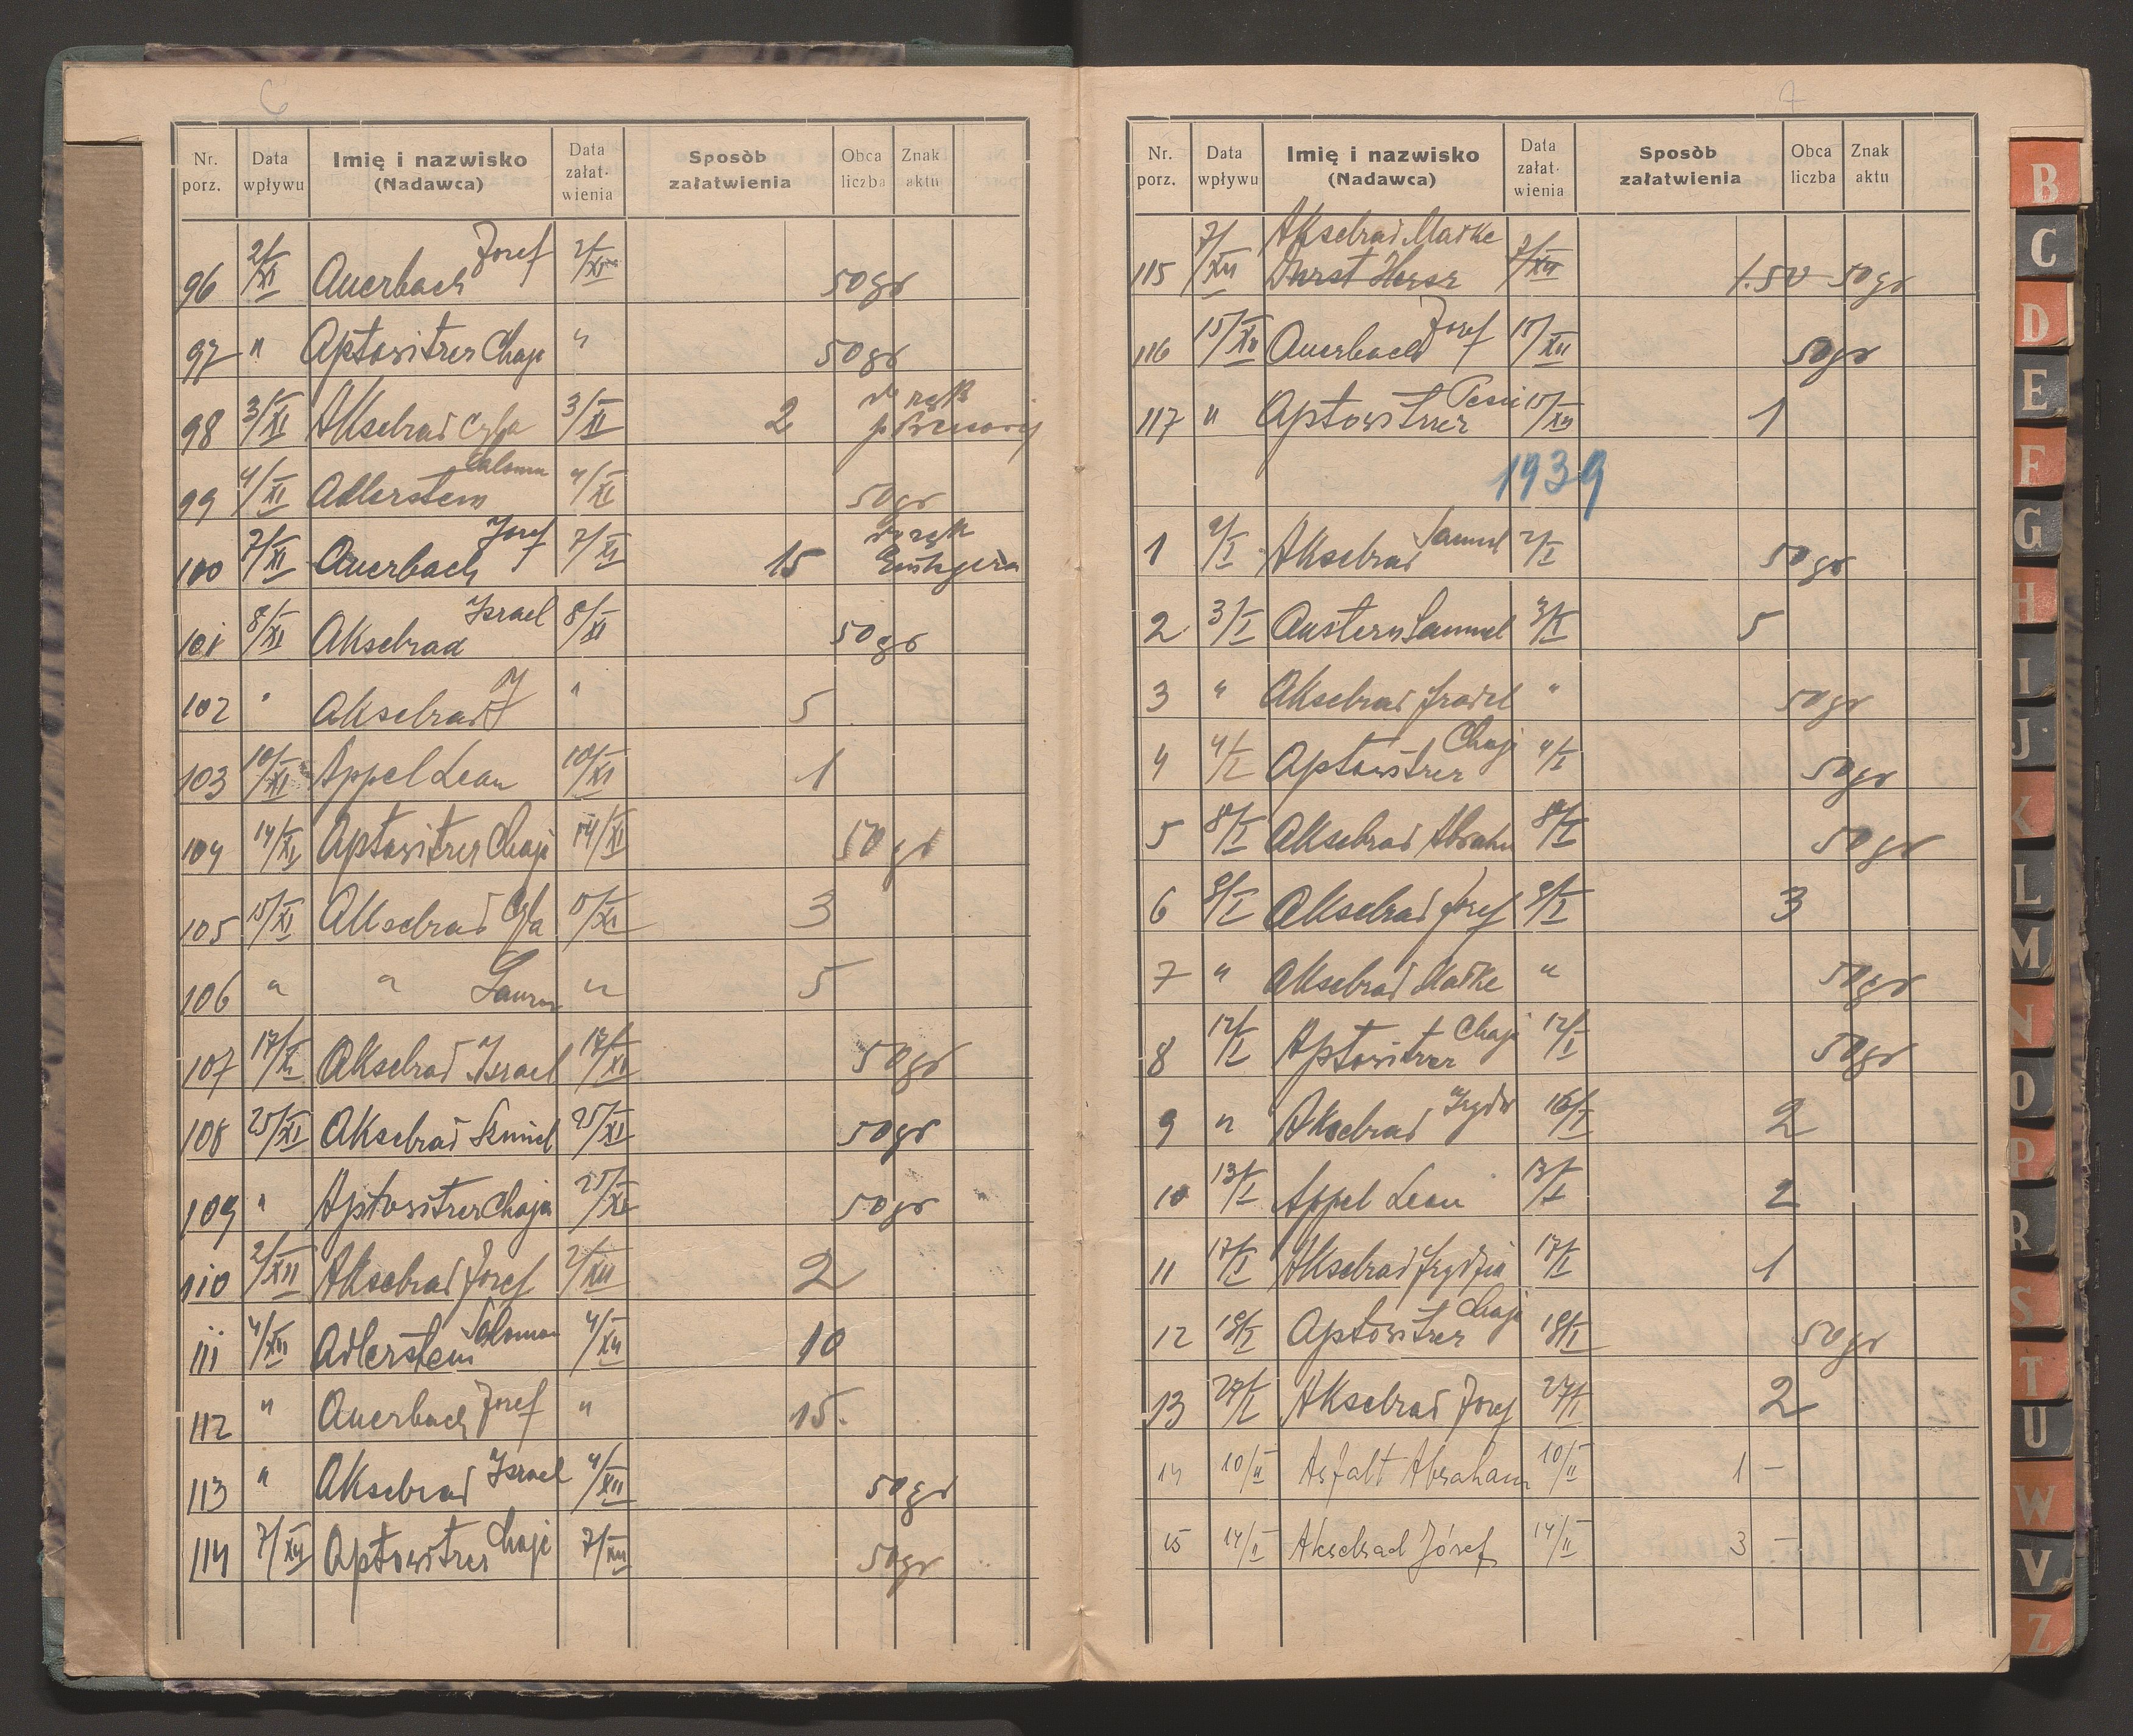 6
Nr. porz. Data wpływu Imię i nazwisko (Nadawca) Data załat-wienia Sposòb załatwienia Obca liczba Znak aktu
96 2/XI Auerbach Josef 2/XI 50 gr
97 " Aptowitzer Chaje " 50 gr
98 3/XI Akselrad Cyla 3/XI 2 do rąk
99 4/XI Adlerstein Salomon 4/XI 50 gr
100 7/XI Auerbach Josef 7/XI 15 do rąk
101 8/XI Akselrad Israel 8/XI 50 gr
102 " Akselrad J " 5
103 10/XI Appel Leon 10/XI 1
104 14/XI Aptowitzer Chaje 14/XI 50 gr
105 15/XI Akselrad Cyla 15/XI 3
106 " " " 5
107 17/XI Akselrad Israel 17/XI 50 gr
108 25/XI Akselrad Samuel 25/XI 50 gr
109 " Aptowitzer Chaja 25/XI 50 gr
110 2/XII Akselrad Josef 2/XII 2
111 4/XII Adlerstein Salomon 4/XII 10
112 " Auerbach Josef " 15.
113 " Akselrad Israel 4/XII 50 gr
114 7/XII Aptowitzer Chaje 7/XII 50 gr
7
Nr. porz. Data wpływu Imię i nazwisko (Nadawca) Data załat-wienia Sposòb załatwienia Obca liczba Znak aktu
Akselrad Matke
115 7/XII Durst Hersz 7/XII 1.50 50 gr
116 15/XII Auerbach Josef 15/XII 50 gr
117 " Aptowitzer Pesie 15/XII 1
1939
1 2/I Akselrad Samuel 2/I 50 gr
2 3/I Austern Samuel 3/I 5
3 " Akselrad Israel " 50 gr
4 4/I Aptowitzer Chaje 4/I 50 gr
5 8/I Akselrad Abraham 8/I 50 gr
6 9/I Akselrad Josef 9/I 3
7 " Akselrad Matke " 50 gr
8 12/I Aptowitzer Chaje 12/I 50 gr
9 " Akselrad 16/I 2
10 13/I Appel Leon 13/I 2
11 17/I Akselrad 17/I 1
12 18/I Aptowitzer Chaje 18/I 50 gr
13 27/I Akselrad Josef 27/I 2
14 10/II Asfalt Abraham 10/II 1 -
15 14/II Akselrad Józef 14/II 3 -
B
C
D
E
F
G
H
I
J
K
L
M
N
O
P
R
S
T
U
W
V
Z